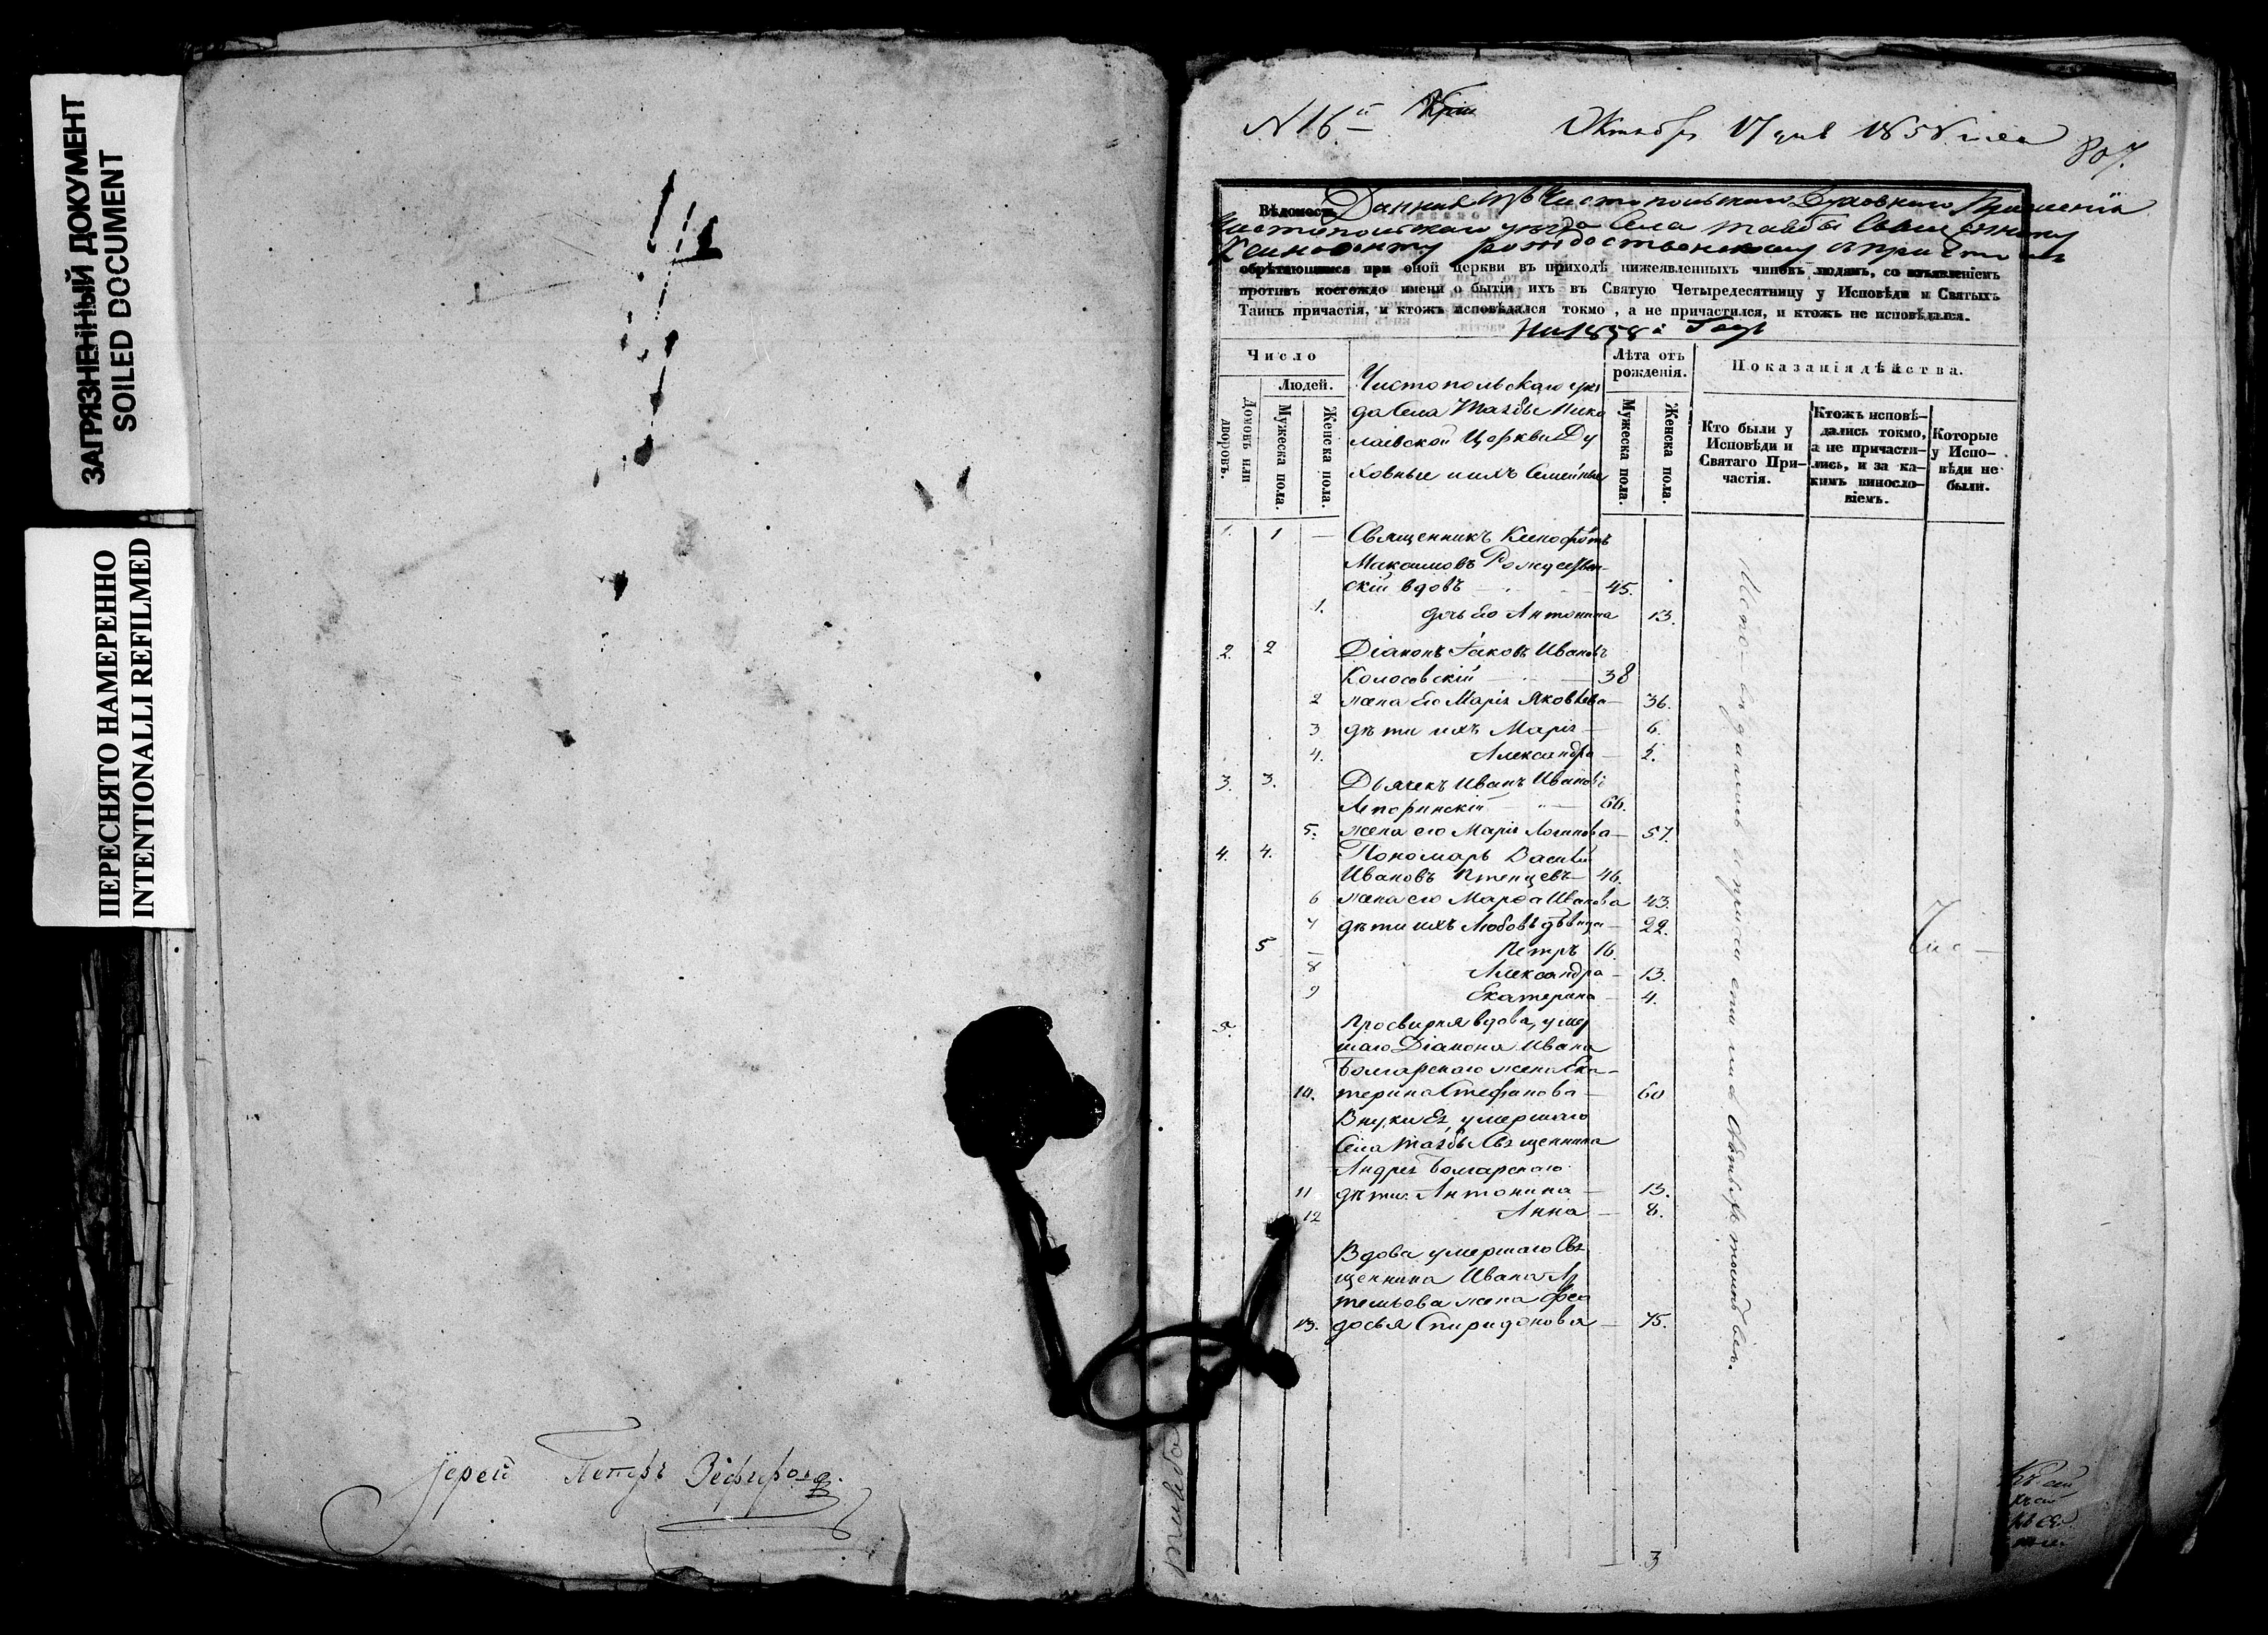 ЗАГРЯЗНЕННЫЙ ДОКУМЕНТ
SOILED DOCUMENT
ПЕРЕСНЯТО НАМЕРЕННО
INTENTIONALLI REFILMED
Іерей Петръ Зефировъ
N 16й
Октября 17 дня 1858 года
807.
Вѣдомость Данная изъ Чистопольскаго Духовнаго Правленія
Чистопольскаго уѣзда Села Шахбы Священнику
Ксинофонту Рождественскому съ причтомъ
обрѣтающимся при оной церкви въ приходѣ нижеявленныхъ чиновъ людямъ, со изъявленіемъ
противъ коегождо имени о бытіи ихъ въ Святую Четыредесятницу у Исповѣди и Святыхъ
Таинъ причастія, и ктожъ исповѣдался токмо, а не причастился, и ктожъ не исповѣдался.
На 1858й Годъ
Число
Домовъ или дворовъ.
Людей.
Мужеска пола.
Женска пола.
Чистопольскаго уѣз
да Села Шахбы Нико
лаевской Церкви Ду
ховные и ихъ Семейные
Лѣта отъ рожденія.
Мужеска пола.
Женска пола.
Показанія дѣйства.
Кто были у Исповѣди и Святаго Причастія.
Ктожъ исповѣдались токмо, а не причастились, и за какимъ винословіемъ.
Которые у Исповѣди не были.
1. 1 — Священникъ Ксинофонтъ
Максимовъ Рождествен-
скій вдовъ — 45.
1. дочь его Антонина 13.
2. 2 Діаконъ Іаковъ Ивановъ
Колосовскій — 38
2 жена его Марія Яковлева — 36.
3 дѣти ихъ Марія — 6.
4. Александра — 2.
3. 3. Дьячекъ Иванъ Ивановъ
Лепоринскій — 66.
5. жена его Марія Логинова — 57
4. 4. Пономарь Василій
Ивановъ Птенцевъ — 46.
6 жена его Марѳа Иванова 43.
7 дѣти ихъ Любовь дѣвица — 22.
5 — Петръ 16.
8 Александра — 13.
9 Екатерина — 4.
5. Просвирня вдова, умер
шаго Діакона Ивана
Болгарскаго жена Ека-
10. терина Стефанова — 60
Внуки Ея, умершаго
Села Шахбы Священника
Андрея Болгарскаго
11 дѣти: Антонина — 13.
12 Анна — 8.
Вдова умершаго Свя
щенника Ивана Ар
темьева жена Ѳео
13. досья Спиридонова — 75.
Испо-вѣдались и пріобщились Святыхъ таинъ всѣ.
3